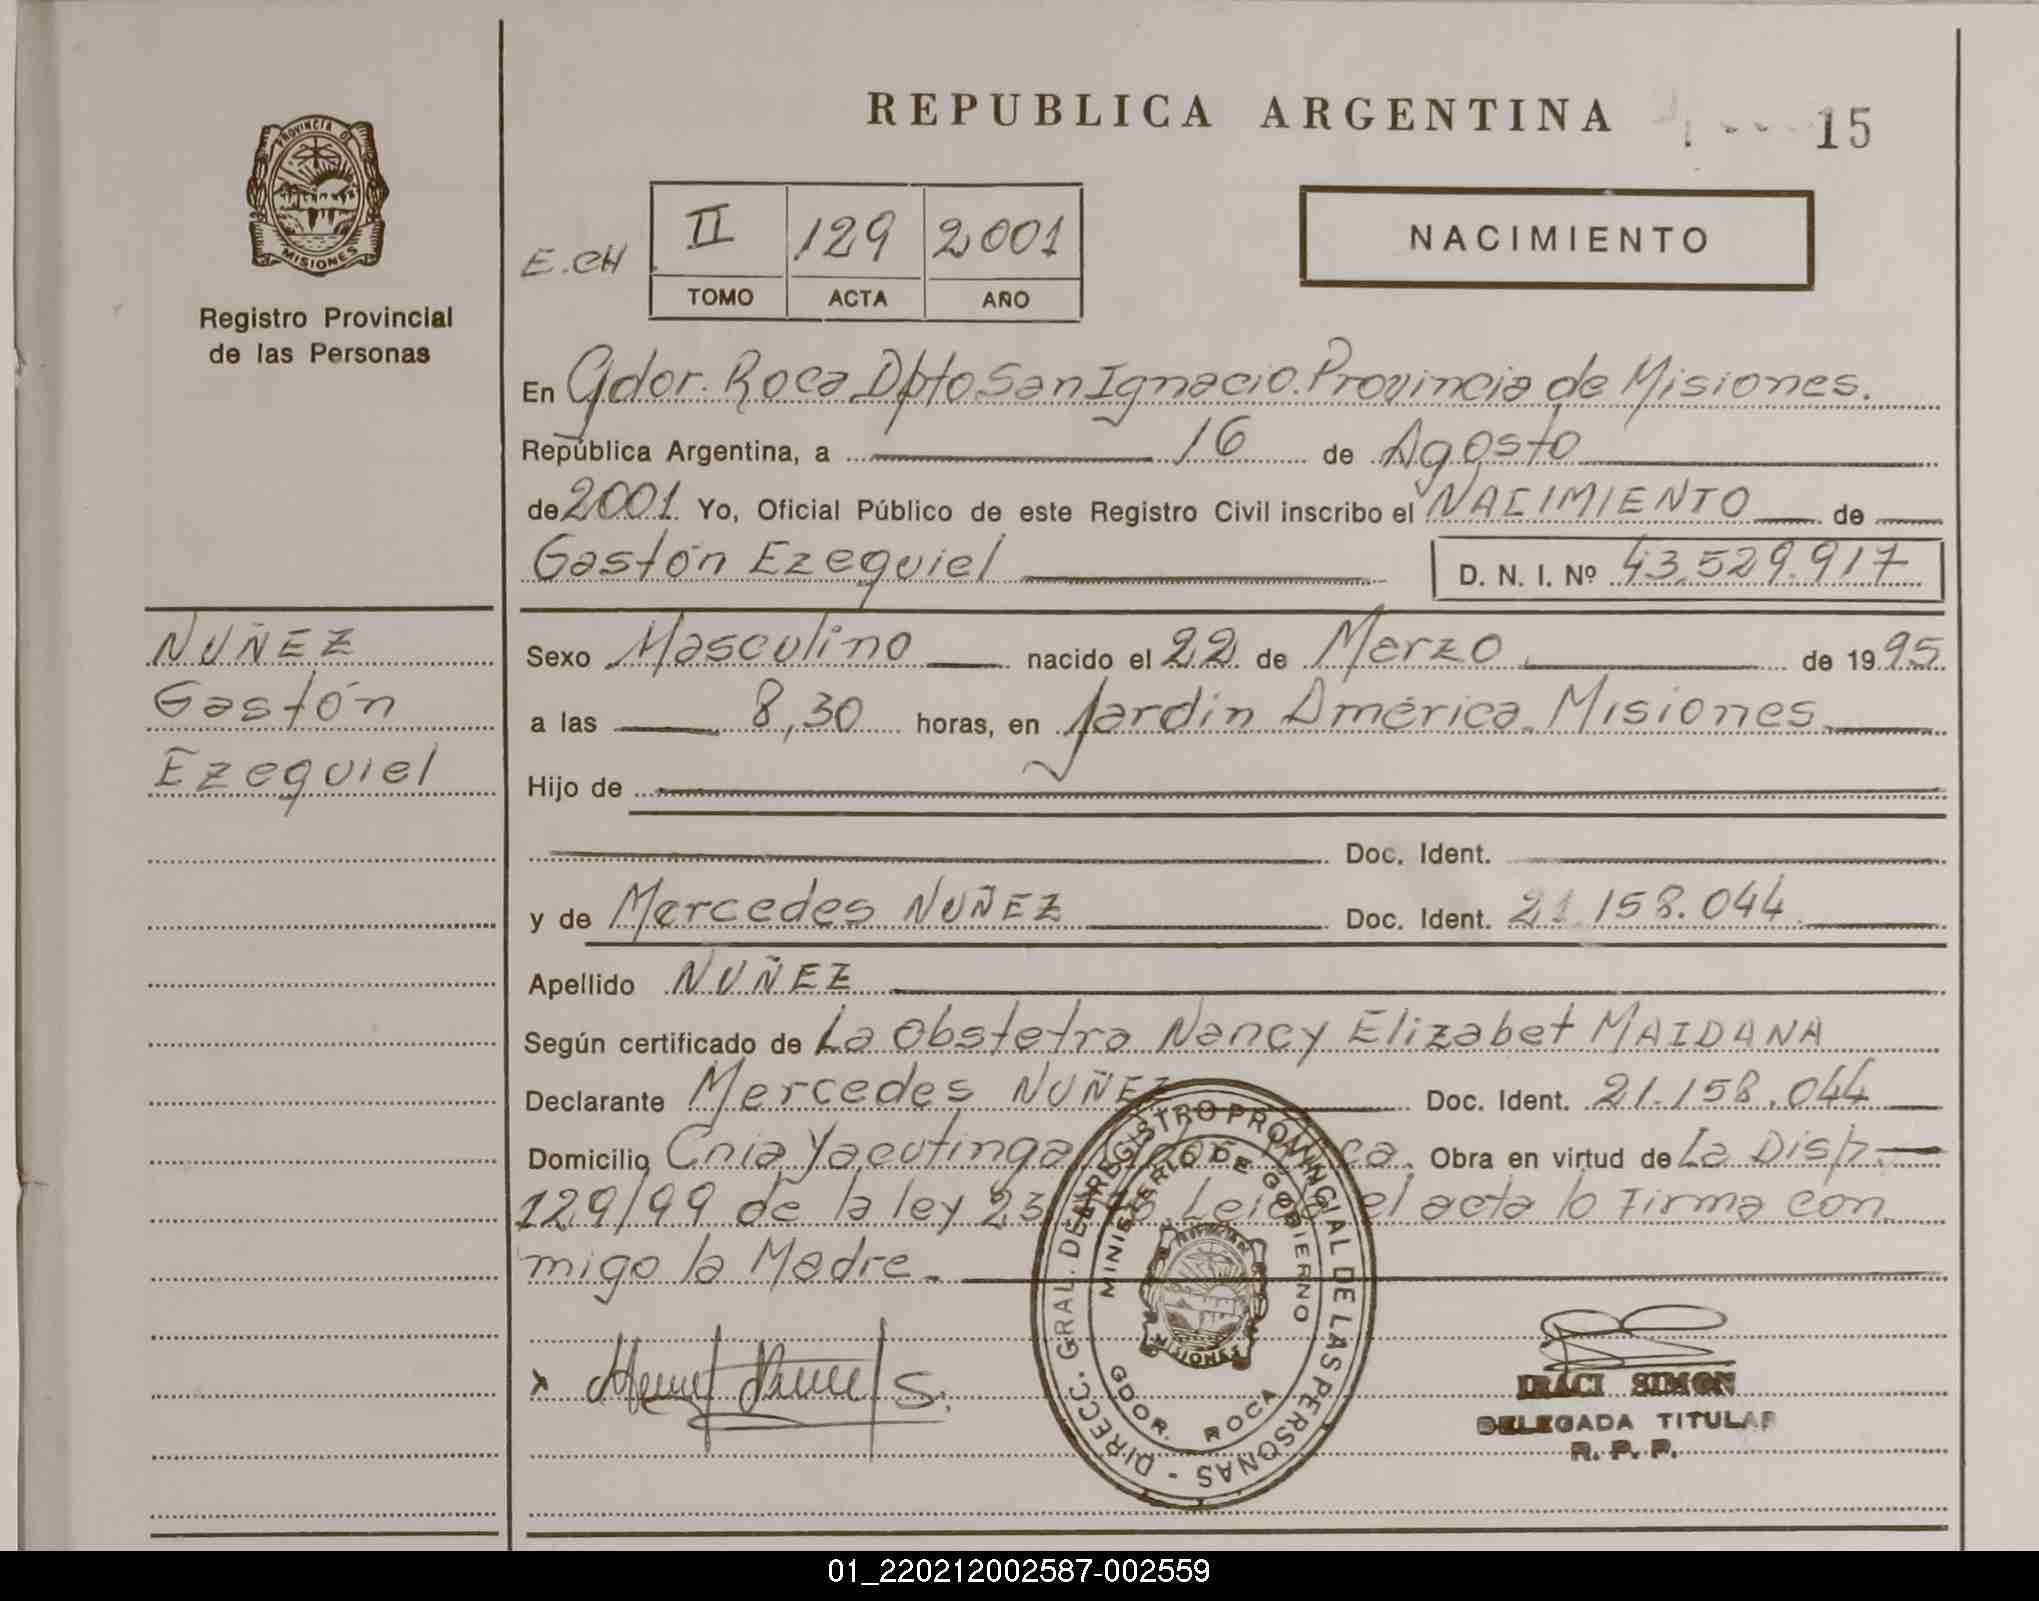 REPUBLICA ARGENTINA 15
PROVINCIA DE
MISIONES
Registro Provincial
de las Personas
E.CH
II 129 2001
TOMO ACTA AÑO
NACIMIENTO
En Gdor. Roca Dpto San Ignacio. Provincia de Misiones.
República Argentina, a 16 de Agosto
de 2001 Yo, Oficial Público de este Registro Civil inscribo el NACIMIENTO de
Gastón Ezequiel D. N. I. Nº 43.529.917
NUÑEZ
Gastón
Ezequiel
Sexo Masculino nacido el 22 de Marzo de 1995
a las 8,30 horas, en Jardín América. Misiones
Hijo de
Doc. Ident.
y de Mercedes NUÑEZ Doc. Ident. 21.158.044
Apellido NUÑEZ
Según certificado de La Obstetra Nancy Elizabet MAIDANA
Declarante Mercedes NUÑEZ Doc. Ident. 21.158.044
Domicilio Cnia Yacutinga Obra en virtud de La Disp.
129/99 de la ley el acta lo Firma con
migo la Madre.
DIRECC. GRAL. DEL REGISTRO PROVINCIAL DE LAS PERSONAS -
MINISTERIO DE GOBIERNO
MISIONES
GDOR. ROCA
IRACI SIMON
DELEGADA TITULAR
R. P. P.
01_220212002587-002559